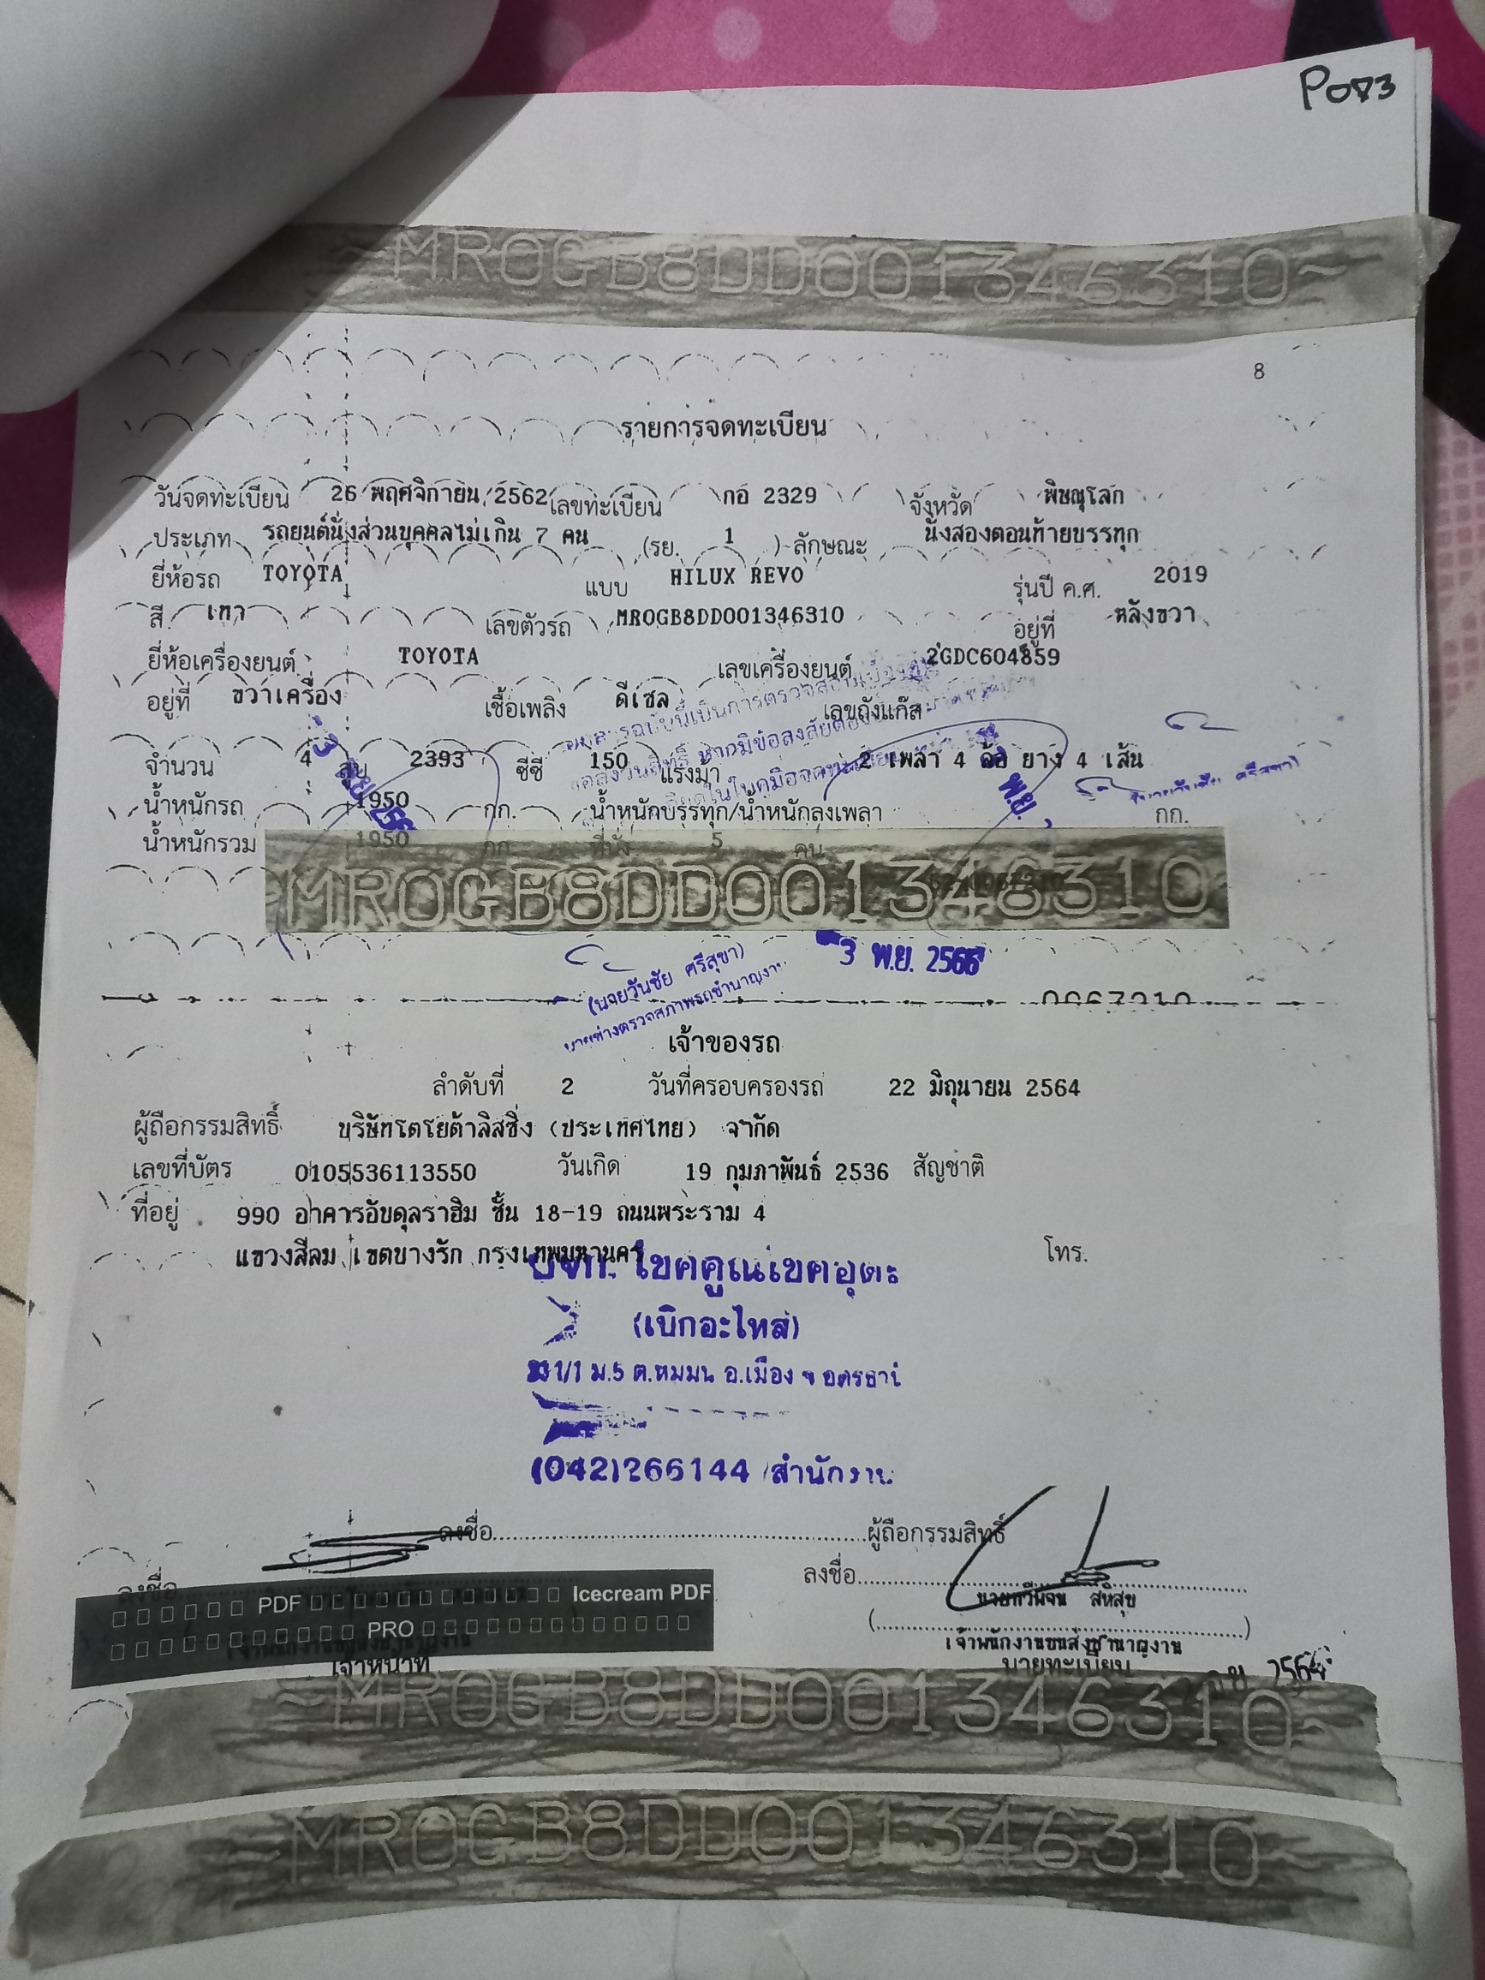 P083
~MR0GB8DD001346310~
8
รายการจดทะเบียน
วันจดทะเบียน 26 พฤศจิกายน 2562 เลขทะเบียน กอ 2329 จังหวัด พิษณุโลก
ประเภท รถยนต์นั่งส่วนบุคคลไม่เกิน 7 คน (รย. 1 ) ลักษณะ นั่งสองตอนท้ายบรรทุก
ยี่ห้อรถ TOYOTA แบบ HILUX REVO รุ่นปี ค.ศ. 2019
สี เทา เลขตัวรถ MR0GB8DD001346310 อยู่ที่ หลังขวา
ยี่ห้อเครื่องยนต์ TOYOTA เลขเครื่องยนต์ 2GDC604859
อยู่ที่ ขวาเครื่อง เชื้อเพลิง ดีเซล เลขถังแก๊ส
จำนวน 4 สูบ 2393 ซีซี 150 แรงม้า 2 เพลา 4 ล้อ ยาง 4 เส้น
น้ำหนักรถ 1950 กก. น้ำหนักบรรทุก/น้ำหนักลงเพลา กก.
น้ำหนักรวม 1950 กก. ที่นั่ง 5 คน
MR0GB8DD001346310
3 พ.ย. 2566
(นายวันชัย ศรีสุขา)
นายช่างตรวจสภาพรถชำนาญงาน
เจ้าของรถ
ลำดับที่ 2 วันที่ครอบครองรถ 22 มิถุนายน 2564
ผู้ถือกรรมสิทธิ์ บริษัทโตโยต้าลีสซิ่ง (ประเทศไทย) จำกัด
เลขที่บัตร 0105536113550 วันเกิด 19 กุมภาพันธ์ 2536 สัญชาติ
ที่อยู่ 990 อาคารอับดุลราฮิม ชั้น 18-19 ถนนพระราม 4
แขวงสีลม เขตบางรัก กรุงเทพมหานคร โทร.
(เบิกอะไหล่)
(042)266144 สำนักงาน
ลงชื่อ ผู้ถือกรรมสิทธิ์
ลงชื่อ ลงชื่อ
PDF Icecream PDF
PRO
เจ้าพนักงานขนส่งชำนาญงาน
เจ้าหน้าที่ นายทะเบียน
~MR0GB8DD001346310~
~MR0GB8DD001346310~